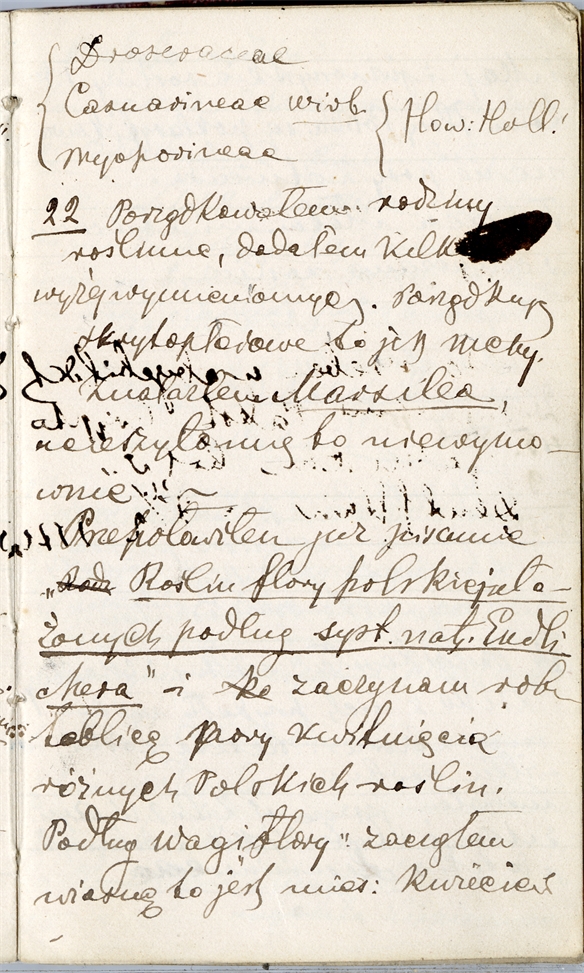 Droseraceae
Casuarineae wirb. How: Holl!
Myoporineae
22 Porządkowałem rodziny
roślinne, dodałem kilk
wyżej wymienionych. Porządkuję
skrytopłciowe to jest mchy.
Znalazłem Marsilea,
ucieszyło mię to niewymo-
wnie
Przepołowiłem już pisanie
" Roślin flory polskiej uło-
żonych podług syst. nat. Endli
chera" i zaczynam rob
tablicę pory kwitnięcia
różnych Polskich roślin.
Podług Wagi "flory" zacząłem
wiosnę to jest mies: Kwiecień